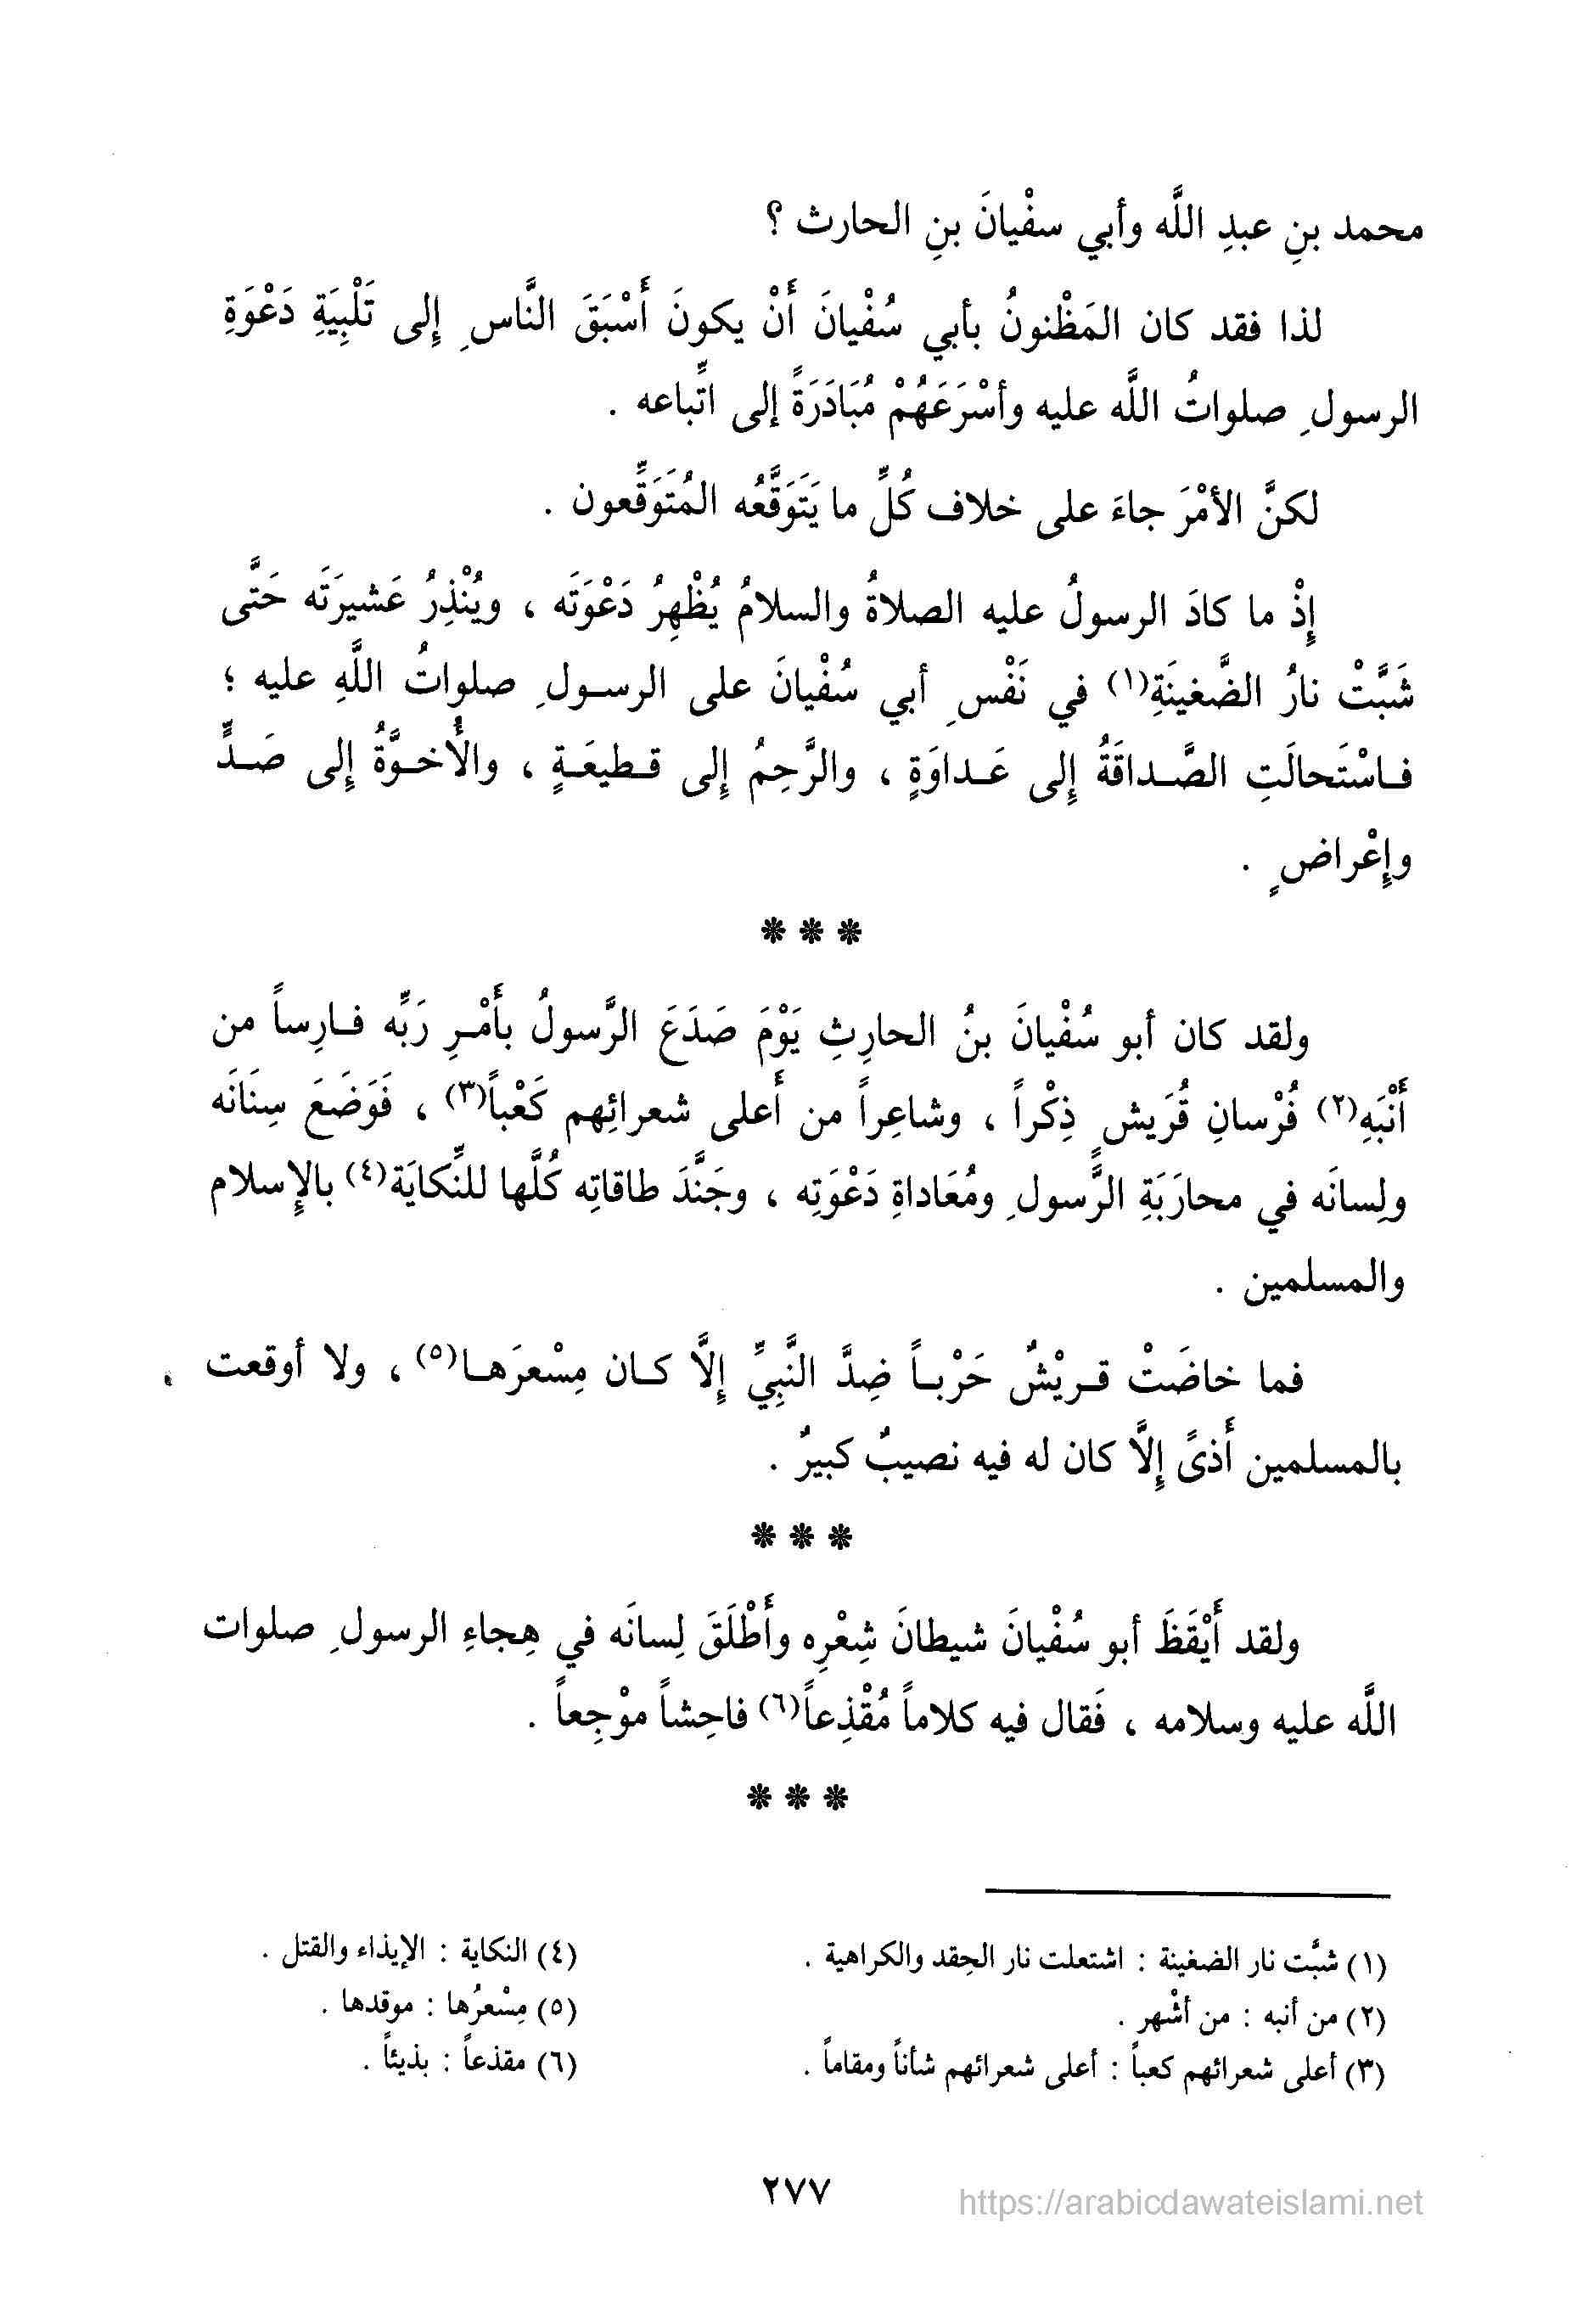 محمد بنِ عبدِ اللَّه وأبي سفْيانَ بنِ الحارث ؟
لذا فقد كان المَظْنونُ بأبي سُفْيانَ أَنْ يكونَ أَسْبَقَ النَّاسِ إِلى تَلْبِيَةِ دَعْوَةِ
الرسولِ صلواتُ اللَّه عليه وأسْرَعَهُمْ مُبَادَرَةً إلى اتِّباعه .
لكنَّ الأمْرَ جاءَ على خلاف كُلِّ ما يَتَوَقَّعُه المُتَوَقِّعون .
إِذْ ما كادَ الرسولُ عليه الصلاةُ والسلامُ يُظْهِرُ دَعْوَتَه ، ويُنْذِرُ عَشيرَتَه حَتَّى
شَبَّتْ نارُ الضَّغينَةِ(١) في نَفْسِ أبي سُفْيانَ على الرسولِ صلواتُ اللَّهِ عليه ؛
فاسْتَحالَتِ الصَّداقَةُ إِلى عَداوَةٍ ، والرَّحِمُ إِلى قطيعَةٍ ، والأُخوَّةُ إِلى صَدٍّ
وإِعْراضٍ .
* * *
ولقد كان أبو سُفْيانَ بنُ الحارِثِ يَوْمَ صَدَعَ الرَّسولُ بأَمْرِ رَبِّه فارِساً من
أَنْبَهِ(٢) فُرْسانِ قُرَيشٍ ذِكْراً ، وشاعِراً من أَعلى شعرائِهم كَعْباً(٣) ، فَوَضَعَ سِنَانَه
ولِسانَه في محارَبَةِ الرَّسولِ ومُعَاداةِ دَعْوَتِه ، وجَنَّدَ طاقاتِه كُلَّها للنِّكايَة(٤) بالإِسلام
والمسلمين .
فما خاضَتْ قريْشٌ حَرْباً ضِدَّ النَّبِيِّ إِلَّا كان مِسْعرَها(٥) ، ولا أوقعت
بالمسلمين أَذىً إِلَّا كان له فيه نصيبٌ كبيرٌ .
* * *
ولقد أَيْقَظَ أبو سُفْيانَ شيطانَ شِعْرِه وأَطْلَقَ لِسانَه في هِجاءِ الرسولِ صلوات
اللَّه عليه وسلامه ، فَقال فيه كلاماً مُقْذِعاً(٦) فاحِشاً موْجِعاً .
* * *
(١) شبَّت نار الضغينة : اشتعلت نار الحِقد والكراهية .
(٢) من أنبه : من أشْهر .
(٣) أعلى شعرائهم كعباً : أعلى شعرائهم شأناً ومقاماً .
(٤) النكاية : الإيذاء والقتل .
(٥) مِسْعرُها : موقدها .
(٦) مقذعاً : بذيئاً .
٢٧٧
https://arabicdawateislami.net